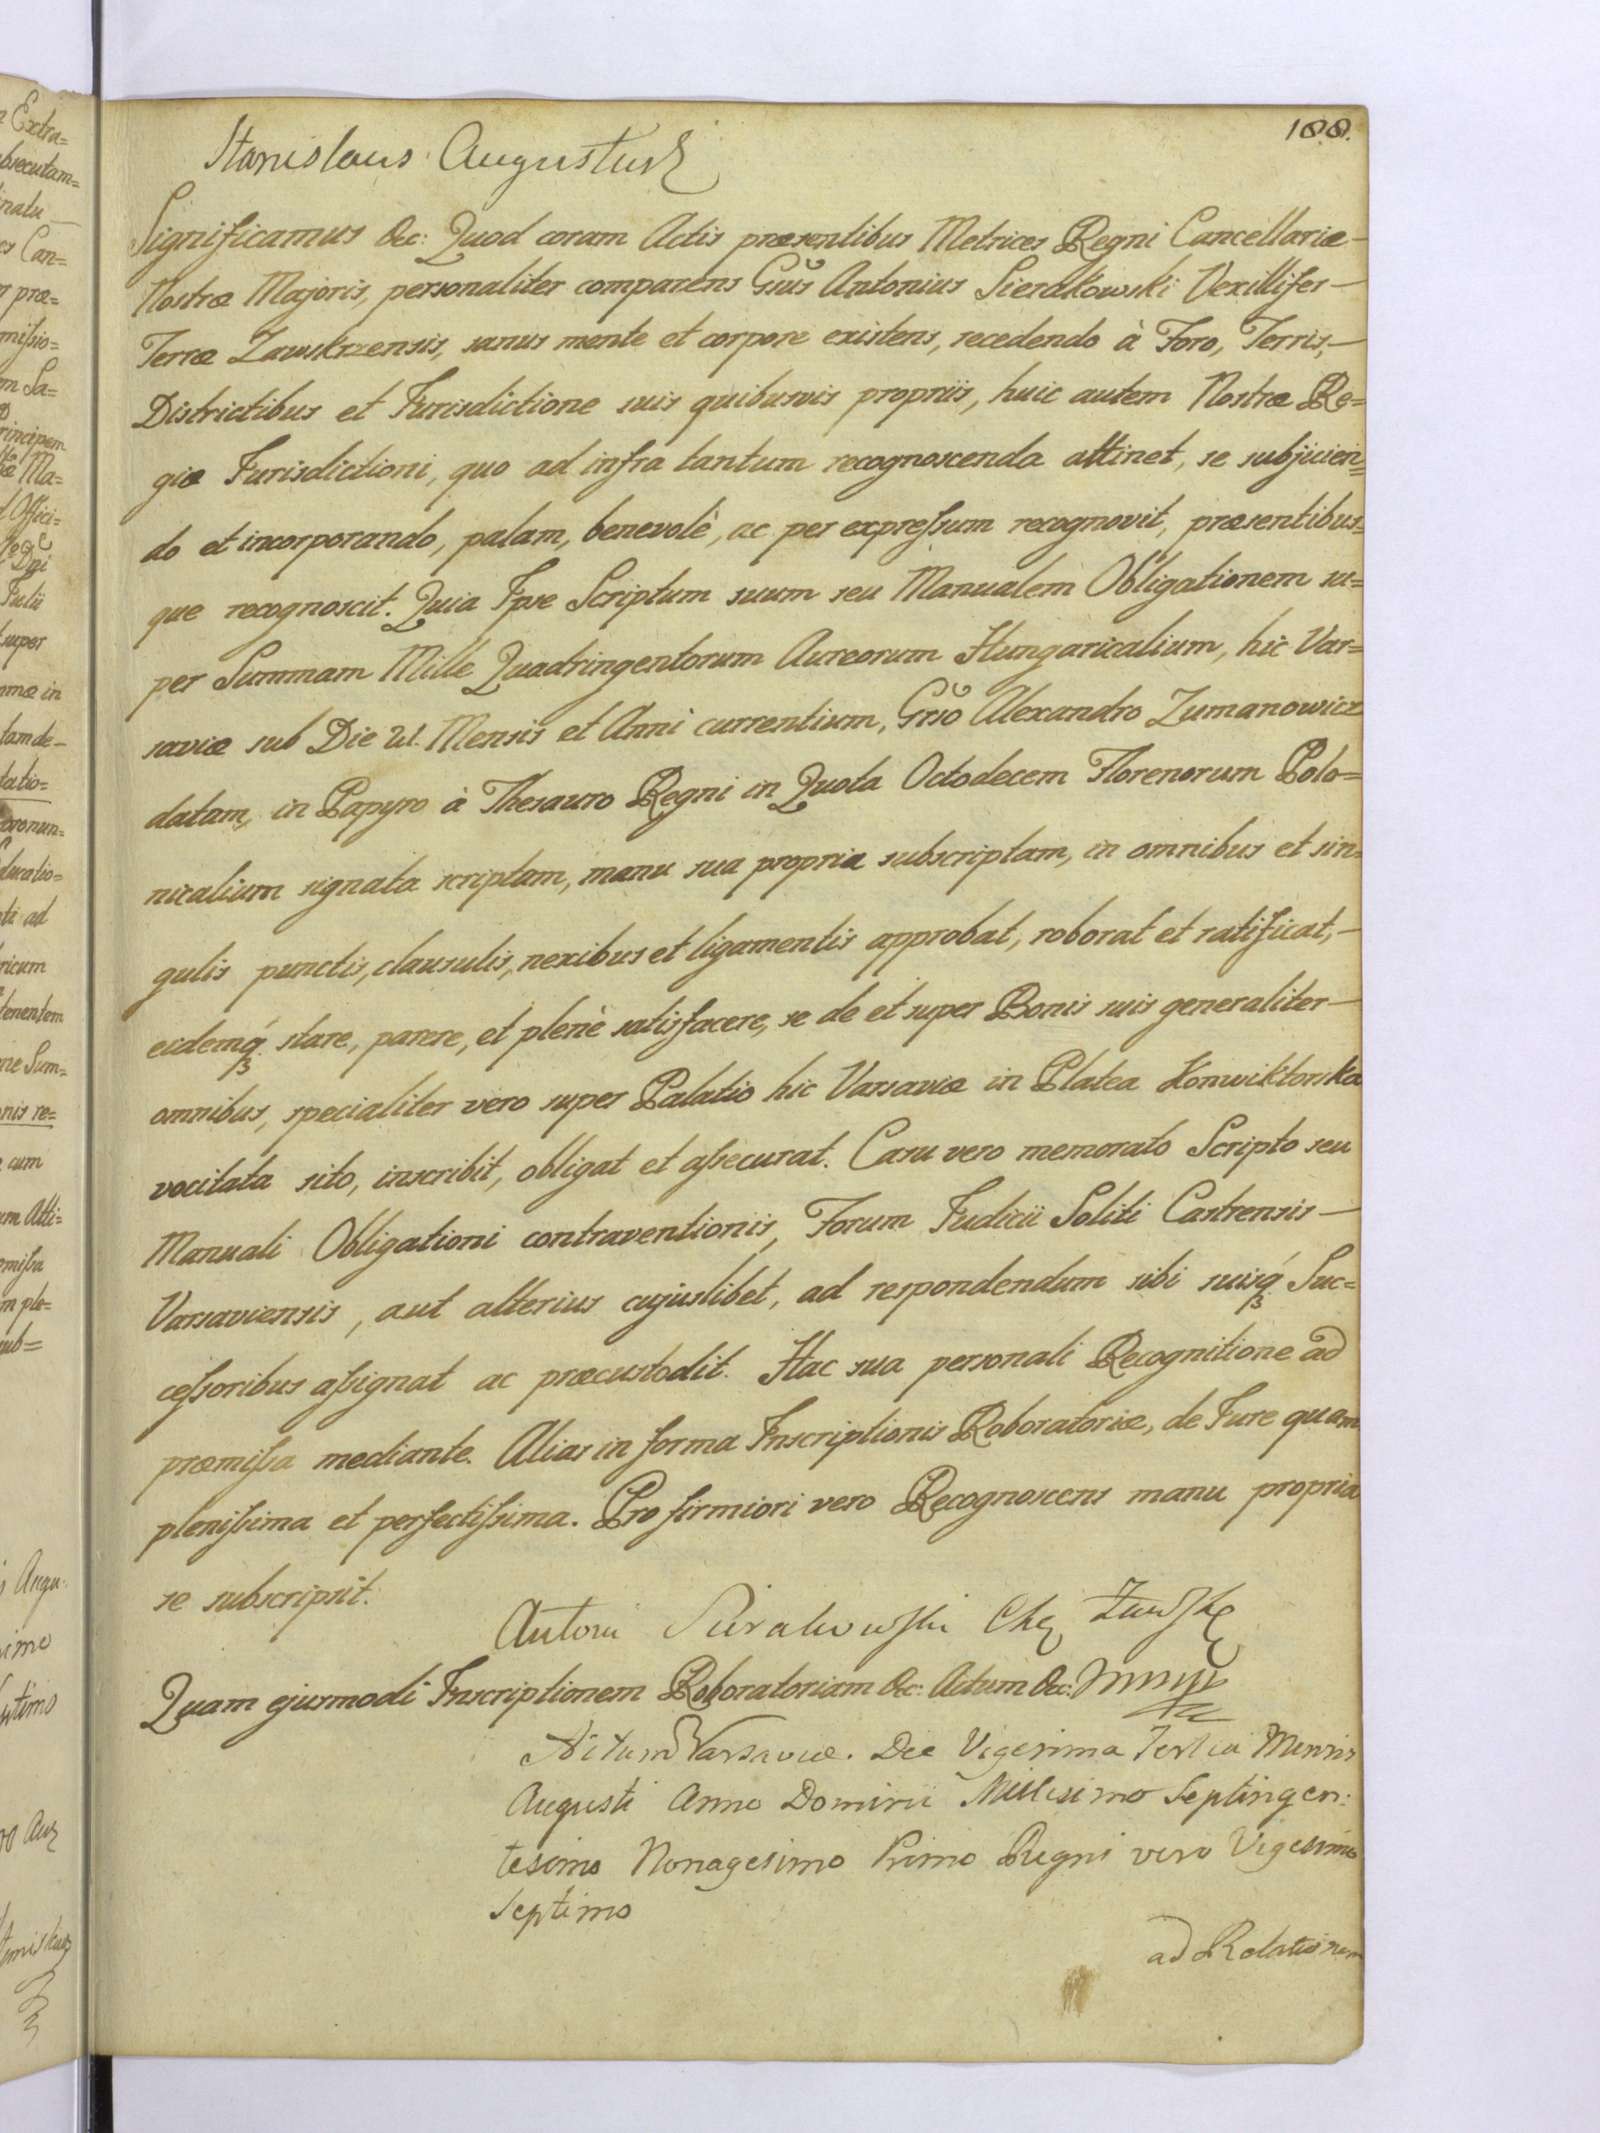 188.
Stanislaus Augustus
Significamus &c: Quod coram Actis præsentibus Metrices Regni Cancellariæ
Nostræ Majoris, personaliter comparens Gsūs Antonius Sierakowski Vexillifer
Terræ Zawskrzensis, sanus mente et corpore existens, recedendo à Foro, Terris,
Districtibus et Jurisdictione suis quibusvis propriis, huic autem Nostræ Re=
giæ Jurisdictioni, quo ad infra tantum recognoscenda attinet, se subjicien=
do et incorporando, palam, benevolè, ac per expressum recognovit, præsentibus=
que recognoscit. Quia Ipse Scriptum suum seu Manualem Obligationem su=
per Summam Mille Quadringentorum Aureorum Hungaricalium, hic Var=
saviæ sub Die 21. Mensis et Anni currentium, Gsō Alexandro Zumanowicz
datam, in Papyro à Thesauro Regni in Quota Octodecem Florenorum Polo=
nicalium signata scriptam, manu sua propria subscriptam, in omnibus et sin=
gulis punctis, clausulis, nexibus et ligamentis approbat, roborat et ratificat,
eidemq́ꝫ stare, parere, et plenè satisfacere, se de et super Bonis suis generaliter
omnibus, specialiter vero super Palatio hic Varsaviæ in Platea Konwiktorska
vocitata sito, inscribit, obligat et assecurat. Casu vero memorato Scripto seu
Manuali Obligationi contraventionis, Forum Judicii Soliti Castrensis
Varsaviensis, aut alterius cujuslibet, ad respondendum sibi suisq́ꝫ Suc=
cessoribus assignat ac præcustodit. Hac sua personali Recognitione ad
præmissa mediante. Alias in forma Inscriptionis Roboratoriæ, de Jure quam
plenissima et perfectissima. Pro firmiori vero Recognoscens manu propria
se subscripsit.
Antoni Sierakowski Chą Zawsk
Quam ejusmodi Inscriptionem Roboratoriam &c: Actum &c:
Actum Varsaviæ. Die Vigesima Tertia Mensis
Augusti Anno Domini Millesimo Septingen:
tesimo Nonagesimo Primo Regni vero Vigesimo
Septimo
ad Relationem